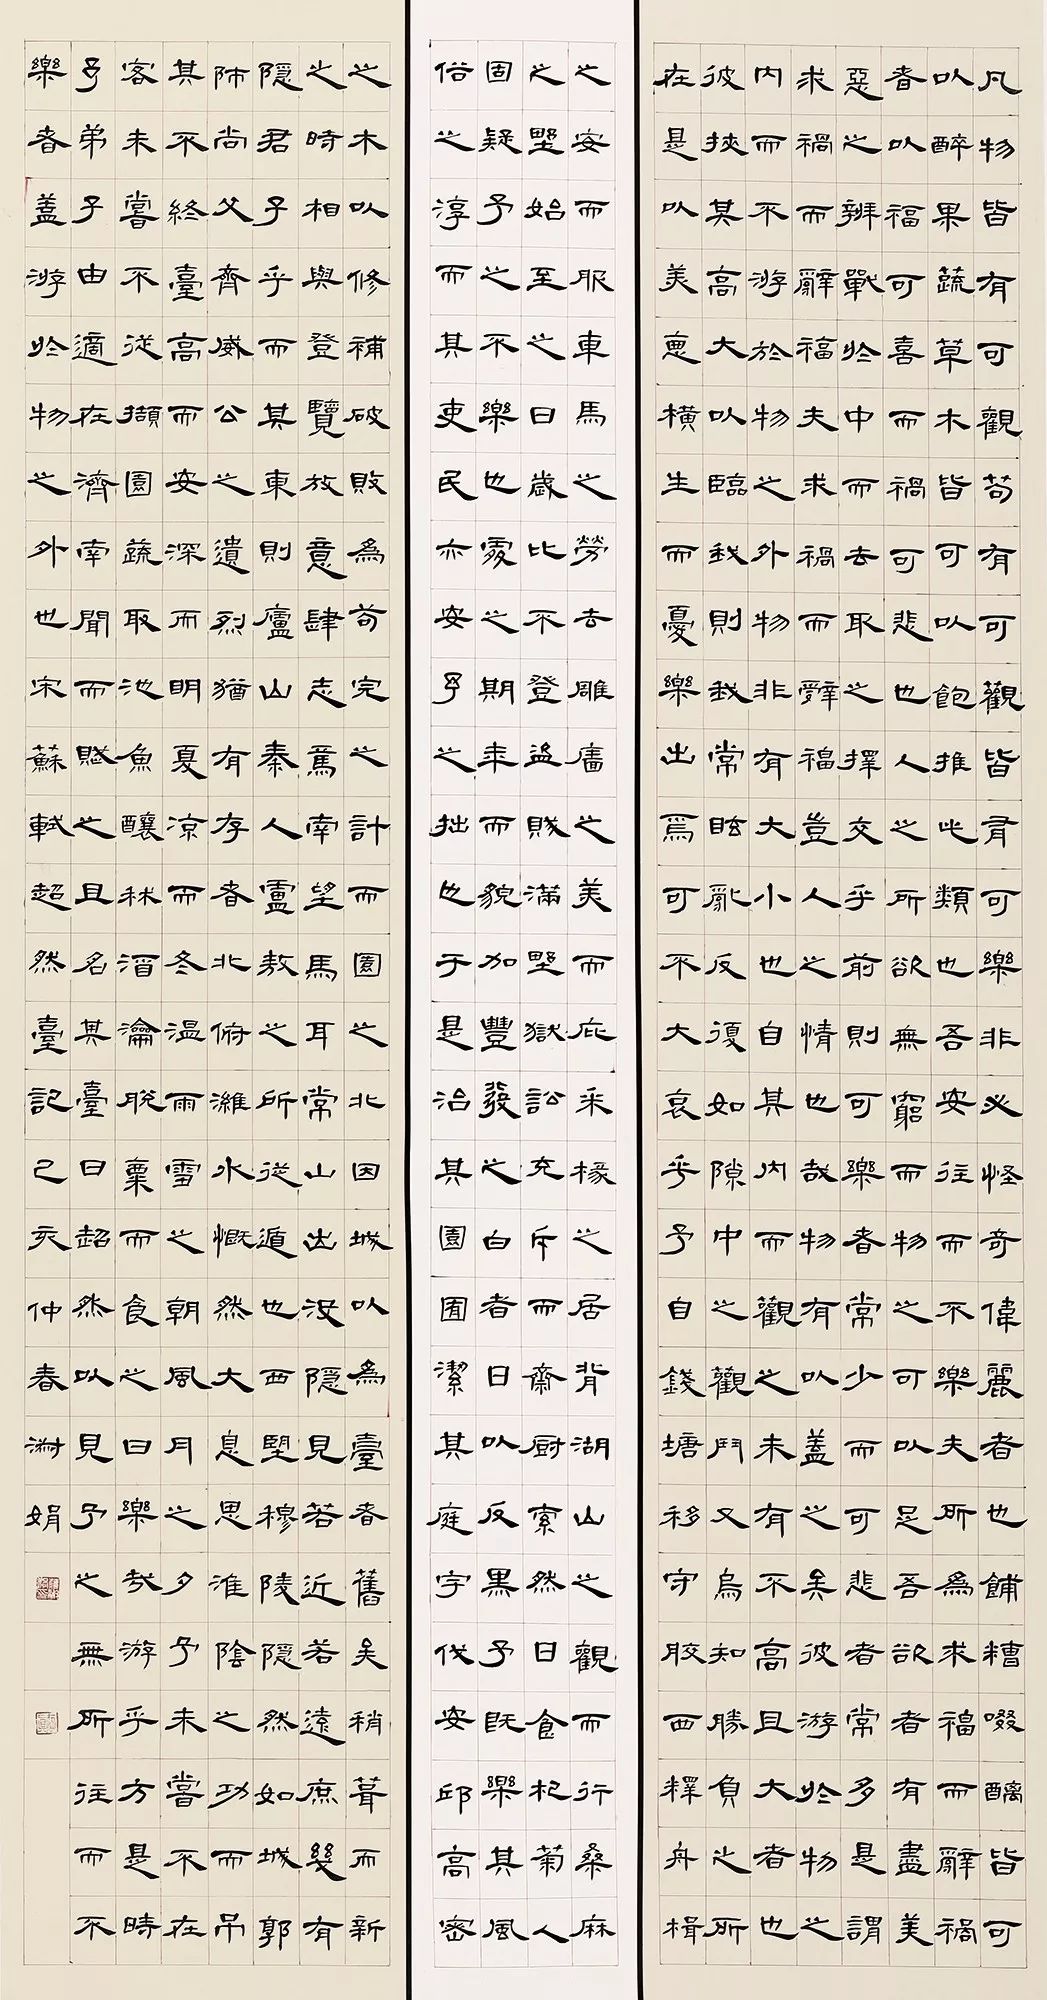 凡物皆有可觀苟有可觀皆有可樂非必怪奇偉麗者也餔糟啜醨皆可
以醉果蔬草木皆可以飽推此類也吾安往而不樂夫所為求福而辭禍
者以福可喜而禍可悲也人之所欲無窮而物之可以足吾欲者有盡美
惡之辨戰於中而去取之擇交乎前則可樂者常少而可悲者常多是謂
求禍而辭福夫求禍而辭福豈人之情也哉物有以蓋之矣彼游於物之
內而不游於物之外物非有大小也自其內而觀之未有不高且大者也
彼挾其高大以臨我則我常眩亂反復如隙中之觀鬥又烏知勝負之所
在是以美惡橫生而憂樂出焉可不大哀乎予自錢塘移守膠西釋舟楫
之安而服車馬之勞去雕牆之美而庇采椽之居背湖山之觀而行桑麻
之野始至之日歲比不登盜賊滿野獄訟充斥而齋廚索然日食杞菊人
固疑予之不樂也處之期年而貌加豐發之白者日以反黑予既樂其風
俗之淳而其吏民亦安予之拙也于是治其園囿潔其庭宇伐安邱高密
之木以修補破敗為苟完之計而園之北因城以為臺者舊矣稍葺而新
之時相與登覽放意肆志焉南望馬耳常山出没隱見若近若遠庶幾有
隱君子乎而其東則廬山秦人盧敖之所從遁也西望穆陵隱然如城郭
師尚父齊威公之遺烈猶有存者北俯濰水慨然大息思淮陰之功而吊
其不終臺高而安深而明夏涼而冬溫雨雪之朝風月之夕予未嘗不在
客未嘗不從擷園蔬取池魚釀秫酒瀹脫粟而食之曰樂哉游乎方是時
予弟子由適在濟南聞而賦之且名其臺曰超然以見予之無所往而不
樂者蓋游於物之外也宋蘇軾超然臺記己亥仲春娟